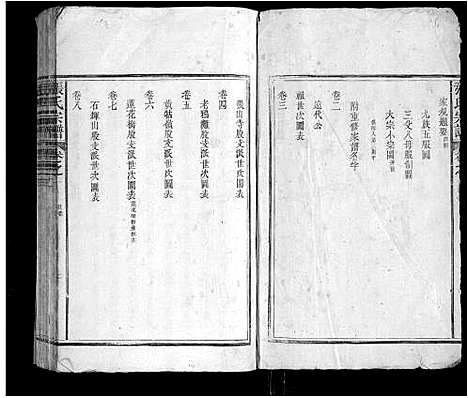 張氏宗譜
家規題要
九族五服圖
三父八母服制圖
大宗小宗圖
卷二
附重修家譜名字
遠代公
福世次圖
卷三
卷四
後山寺股支派世次圖表
卷五
老鴉灘股支派世次圖表
卷六
黃牯嶺股支派世次圖表
卷七
蓮花街股支派世次圖表
卷八
石輝山股支派世次圖表
張氏宗譜